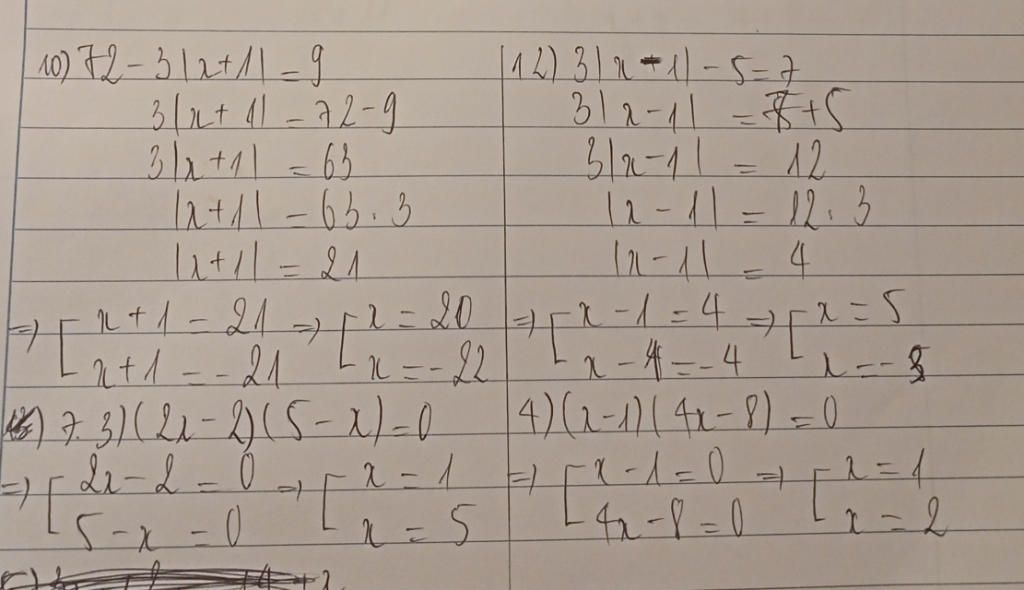 10) 72 - 3|x+1| = 9
3|x+1| = 72-9
3|x+1| = 63
|x+1| = 63 . 3
|x+1| = 21
=> [ x+1 = 21 => [ x = 20
x+1 = -21 x = -22
12) 3|x-1| - 5 = 7
3|x-1| = 7+5
3|x-1| = 12
|x-1| = 12 . 3
|x-1| = 4
=> [ x-1 = 4 => [ x = 5
x-1 = -4 x = -3
7. 3) (2x-2)(5-x) = 0
=> [ 2x-2 = 0 => [ x = 1
5-x = 0 x = 5
4) (x-1)(4x-8) = 0
=> [ x-1 = 0 => [ x = 1
4x-8 = 0 x = 2